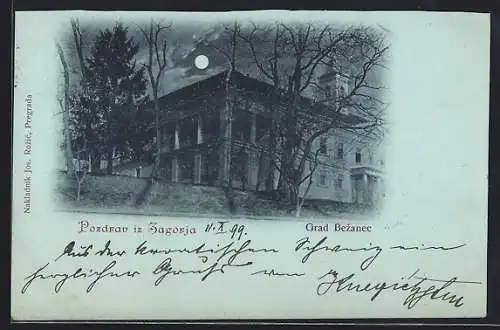 Nakladnik Jos. Rožić, Pregrada
Pozdrav iz Zagorja 11.X.99.
Grad Bežanec
Aus der kroatischen Schweiz ein
herzlicher Gruss von